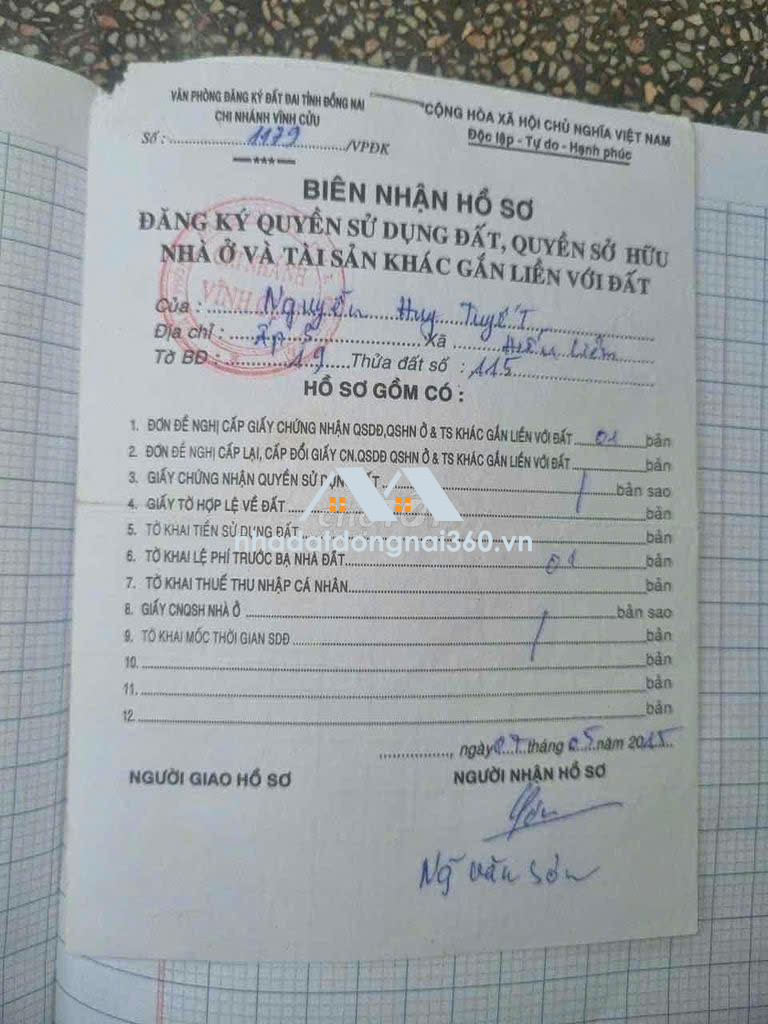 VĂN PHÒNG ĐĂNG KÝ ĐẤT ĐAI TỈNH ĐỒNG NAI
CHI NHÁNH VĨNH CỬU
Số : 1179 /VPĐK
***
CỘNG HÒA XÃ HỘI CHỦ NGHĨA VIỆT NAM
Độc lập - Tự do - Hạnh phúc
BIÊN NHẬN HỒ SƠ
ĐĂNG KÝ QUYỀN SỬ DỤNG ĐẤT, QUYỀN SỞ HỮU
NHÀ Ở VÀ TÀI SẢN KHÁC GẮN LIỀN VỚI ĐẤT
CHI NHÁNH
VĨNH
Của : Nguyễn Huy Tuyết
Địa chỉ : Ấp 5 Xã Hiếu Liêm
Tờ BĐ : 19 Thửa đất số : 115
HỒ SƠ GỒM CÓ :
1. ĐƠN ĐỀ NGHỊ CẤP GIẤY CHỨNG NHẬN QSDĐ,QSHN Ở & TS KHÁC GẮN LIỀN VỚI ĐẤT 01 bản
2. ĐƠN ĐỀ NGHỊ CẤP LẠI, CẤP ĐỔI GIẤY CN.QSDĐ QSHN Ở & TS KHÁC GẮN LIỀN VỚI ĐẤT bản
3. GIẤY CHỨNG NHẬN QUYỀN SỬ DỤNG ĐẤT bản sao
4. GIẤY TỜ HỢP LỆ VỀ ĐẤT bản
5. TỜ KHAI TIỀN SỬ DỤNG ĐẤT bản
nhadatdongnai360.vn
6. TỜ KHAI LỆ PHÍ TRƯỚC BẠ NHÀ ĐẤT 01 bản
7. TỜ KHAI THUẾ THU NHẬP CÁ NHÂN bản
8. GIẤY CNQSH NHÀ Ở bản sao
9. TỜ KHAI MỐC THỜI GIAN SDĐ bản
10. bản
11. bản
12. bản
, ngày 07 tháng 05 năm 2015
NGƯỜI GIAO HỒ SƠ
NGƯỜI NHẬN HỒ SƠ
Ng̃ Văn Sơn